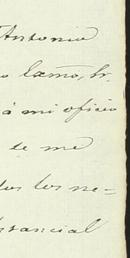 Antonio
o Exmo, Sr.
á mi oficio
se me
dos los ne=
stancial